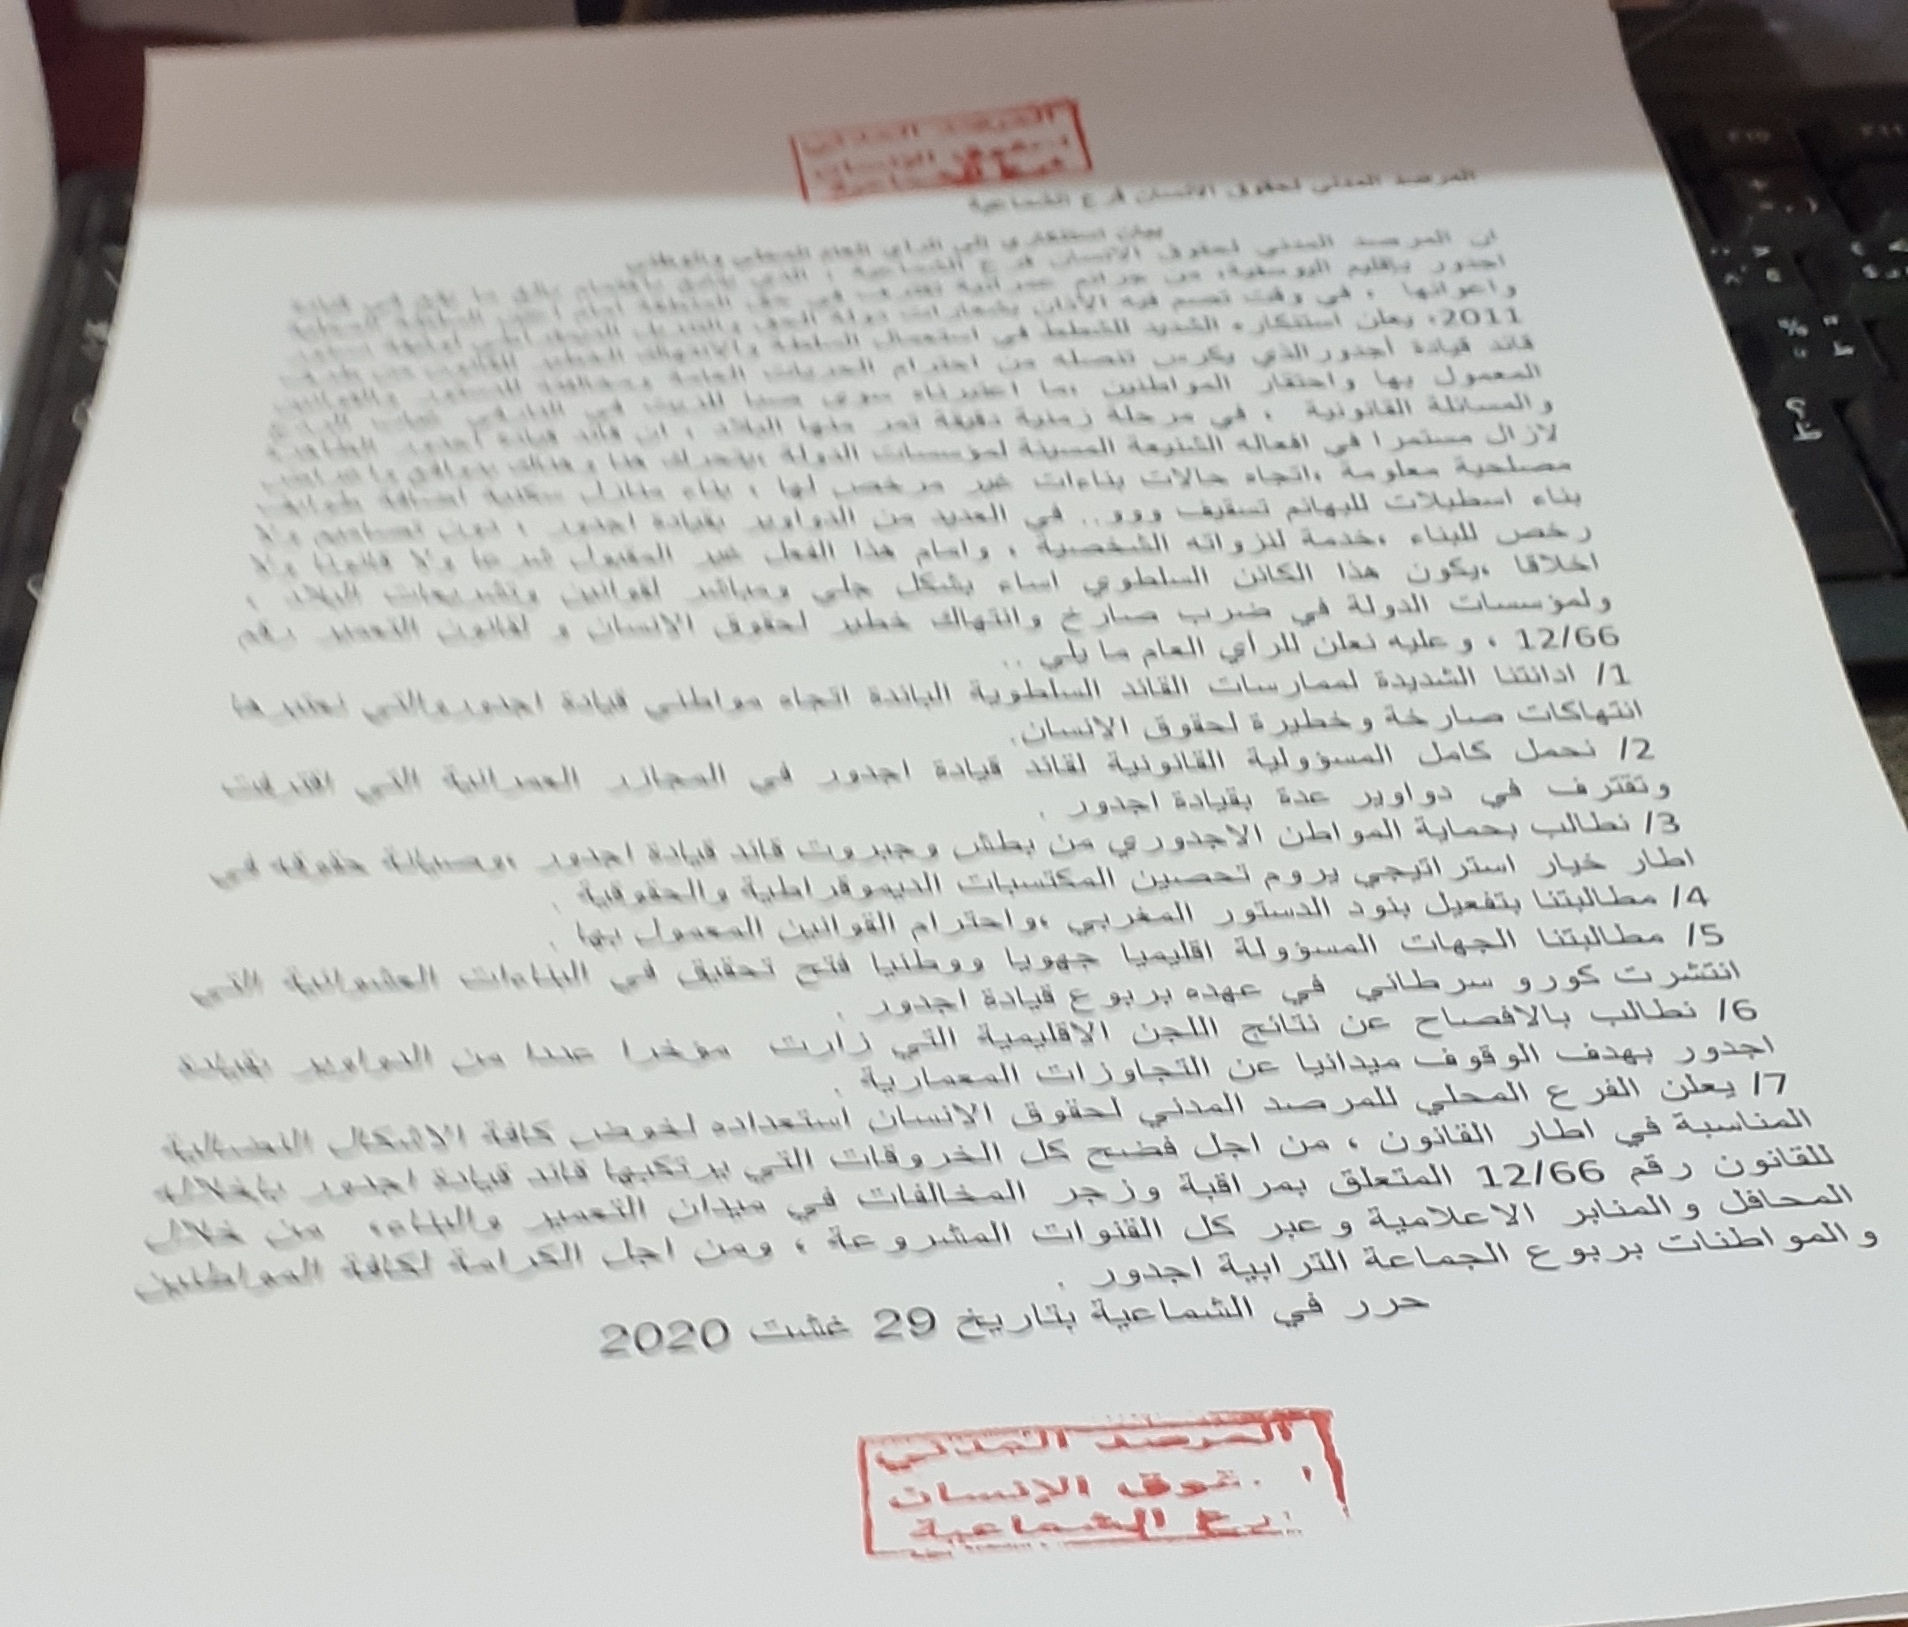 المرصد المدني
الإنسان
المرصد المدني لحقوق الانسان فرع الشماعية
بيان استنكاري الى الراي العام المحلي والوطني
ان المرصد المدني لحقوق الانسان فرع الشماعية ، الذي
اجدور بإقليم اليوسفية، من جرائم عمرانية
واعوانها ، في وقت تصم فيه الأذان بشعارات دولة الحق
2011، يعلن استنكاره الشديد للشطط في استعمال السلطة والانتهاك الخطير للقانون من طرف
قائد قيادة أجدور الذي يكرس تنصله من احترام الحريات العامة
المعمول بها واحتقار المواطنين ،ما اعتبرناه سوى صبا للزيت في
والمسائلة القانونية ، في مرحلة زمنية دقيقة تمر منها البلاد ، ان قائد قيادة اجدور
لازال مستمرا في افعاله الشنيعة المسيئة لمؤسسات الدولة ،يتحرك هنا وهناك
مصلحية معلومة ،اتجاه حالات بناءات غير مرخص لها ، بناء منازل سكنية
بناء اسطبلات للبهائم تسقيف ووو.. في العديد من الدواوير بقيادة اجدور ، دون تصاميم ولا
رخص للبناء ،خدمة لنزواته الشخصية ، وامام هذا الفعل غير المقبول شرعا ولا قانونا ولا
اخلاقا ،يكون هذا الكائن السلطوي اساء بشكل جلي ومباشر لقوانين وتشريعات البلاد ،
ولمؤسسات الدولة في ضرب صارخ وانتهاك خطير لحقوق الانسان و لقانون التعمير رقم
12/66 ، وعليه نعلن للراي العام ما يلي ..
1/ ادانتنا الشديدة لممارسات القائد السلطوية البائدة اتجاه مواطني قيادة اجدوروالتي نعتبرها
انتهاكات صارخة وخطيرة لحقوق الانسان.
2/ نحمل كامل المسؤولية القانونية لقائد قيادة اجدور في المجازر العمرانية التي اقترفت
وتقترف في دواوير عدة بقيادة اجدور .
3/ نطالب بحماية المواطن الاجدوري من بطش وجبروت قائد قيادة اجدور ،وصيانة حقوقه في
اطار خيار استراتيجي يروم تحصين المكتسبات الديموقراطية والحقوقية .
4/ مطالبتنا بتفعيل بنود الدستور المغربي ،واحترام القوانين المعمول بها .
5/ مطالبتنا الجهات المسؤولة اقليميا جهويا ووطنيا فتح تحقيق في البناءات العشوائية التي
انتشرت كورو سرطاني في عهده بربوع قيادة اجدور .
6/ نطالب بالافصاح عن نتائج اللجن الاقليمية التي زارت مؤخرا عددا من الدواوير بقيادة
اجدور بهدف الوقوف ميدانيا عن التجاوزات المعمارية .
7/ يعلن الفرع المحلي للمرصد المدني لحقوق الانسان استعداده لخوض كافة الاشكال النضالية
المناسبة في اطار القانون ، من اجل فضح كل الخروقات التي يرتكبها قائد قيادة اجدور بإخلاله
للقانون رقم 12/66 المتعلق بمراقبة وزجر المخالفات في ميدان التعمير والبناء، من خلال
المحافل والمنابر الاعلامية وعبر كل القنوات المشروعة ، ومن اجل الكرامة لكافة المواطنين
والمواطنات بربوع الجماعة الترابية اجدور .
حرر في الشماعية بتاريخ 29 غشت 2020
المرصد المدني
الإنسان
الشماعية